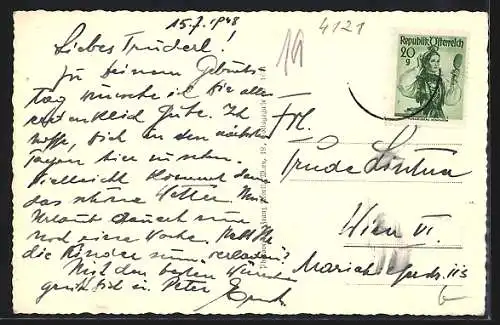 15.7.1948
4121
Liebes Truderl!
Zu Deinem Geburts-
tag wünsche ich Dir alles
erdenklich Gute. Ich
hoffe, Dich in den nächsten
Tagen hier zu sehen.
Vielleicht kommt dann
das schöne Wetter. Mein
Urlaub dauert nur
noch eine Woche.
die Kinder
Mit den besten Wünschen
grüßt Dich u. Peter
Republik Österreich
20
g
Frl.
Trude
Wien VI.
Mariahilferstr. 113